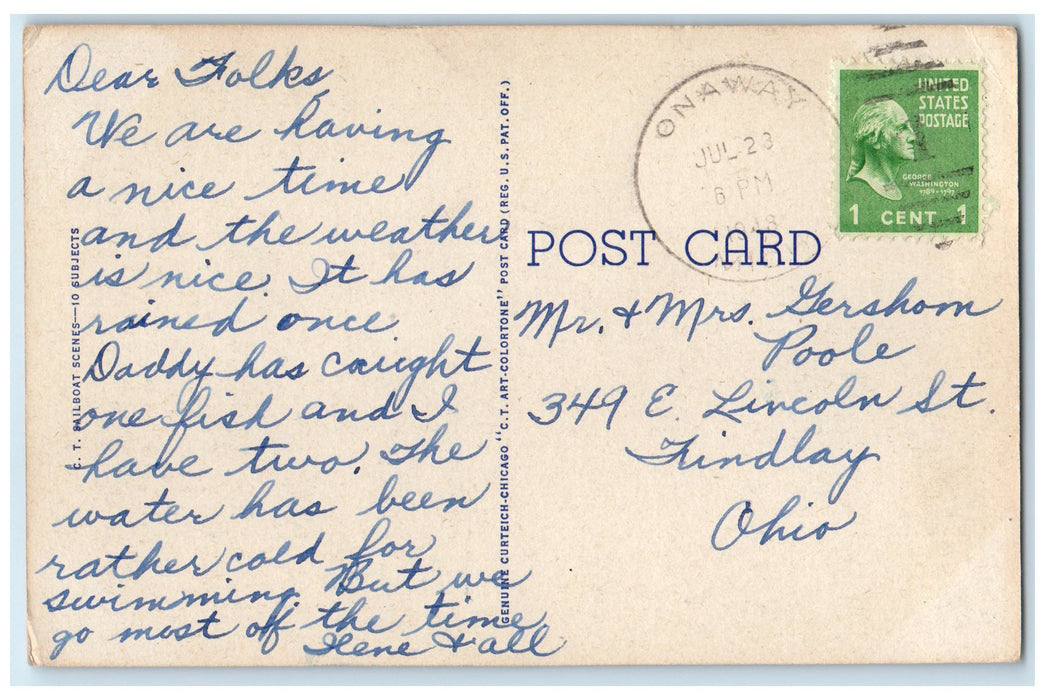 Dear Folks,
We are having
a nice time
and the weather
is nice. It has
rained once
Daddy has caught
one fish and I
have two. The
water has been
rather cold for
swimming. But we
go most of the time
Ilene & all
C. T. SAILBOAT SCENES—10 SUBJECTS
GENUINE CURTEICH-CHICAGO "C. T. ART-COLORTONE" POST CARD (REG. U. S. PAT. OFF.)
ONAWAY
JUL 23
6 PM
UNITED
STATES
POSTAGE
GEORGE
WASHINGTON
1789-1797
1 CENT 1
POST CARD
Mr. & Mrs. Gershom
Poole
349 E. Lincoln St.
Findlay
Ohio